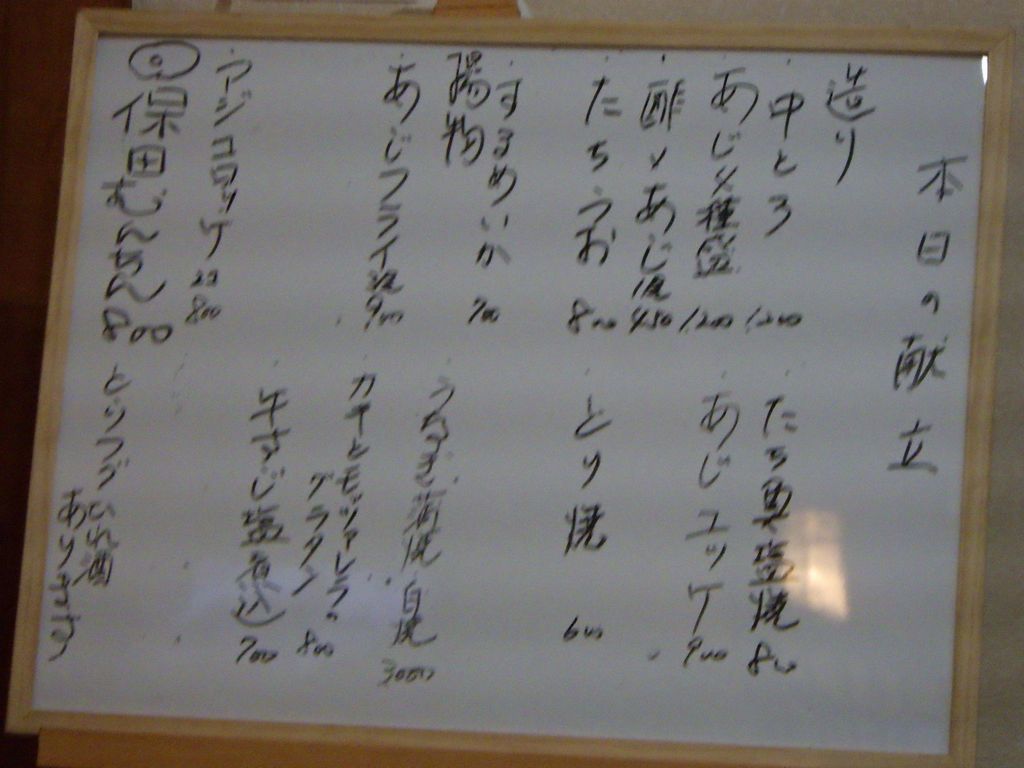 本日の献立
造り
中とろ 1,200
あじ 種盛 1,200
酢〆あじ 450
たちうお 800
するめいか 700
揚物
あじフライ 900
アジコロッケ 2コ 800
保田
たち魚塩焼 800
あじユッケ 900
とり焼 600
うなぎ蒲焼 白焼 3000
カキとモッツァレラの
グラタン 800
牛すじ塩煮込 700
あります